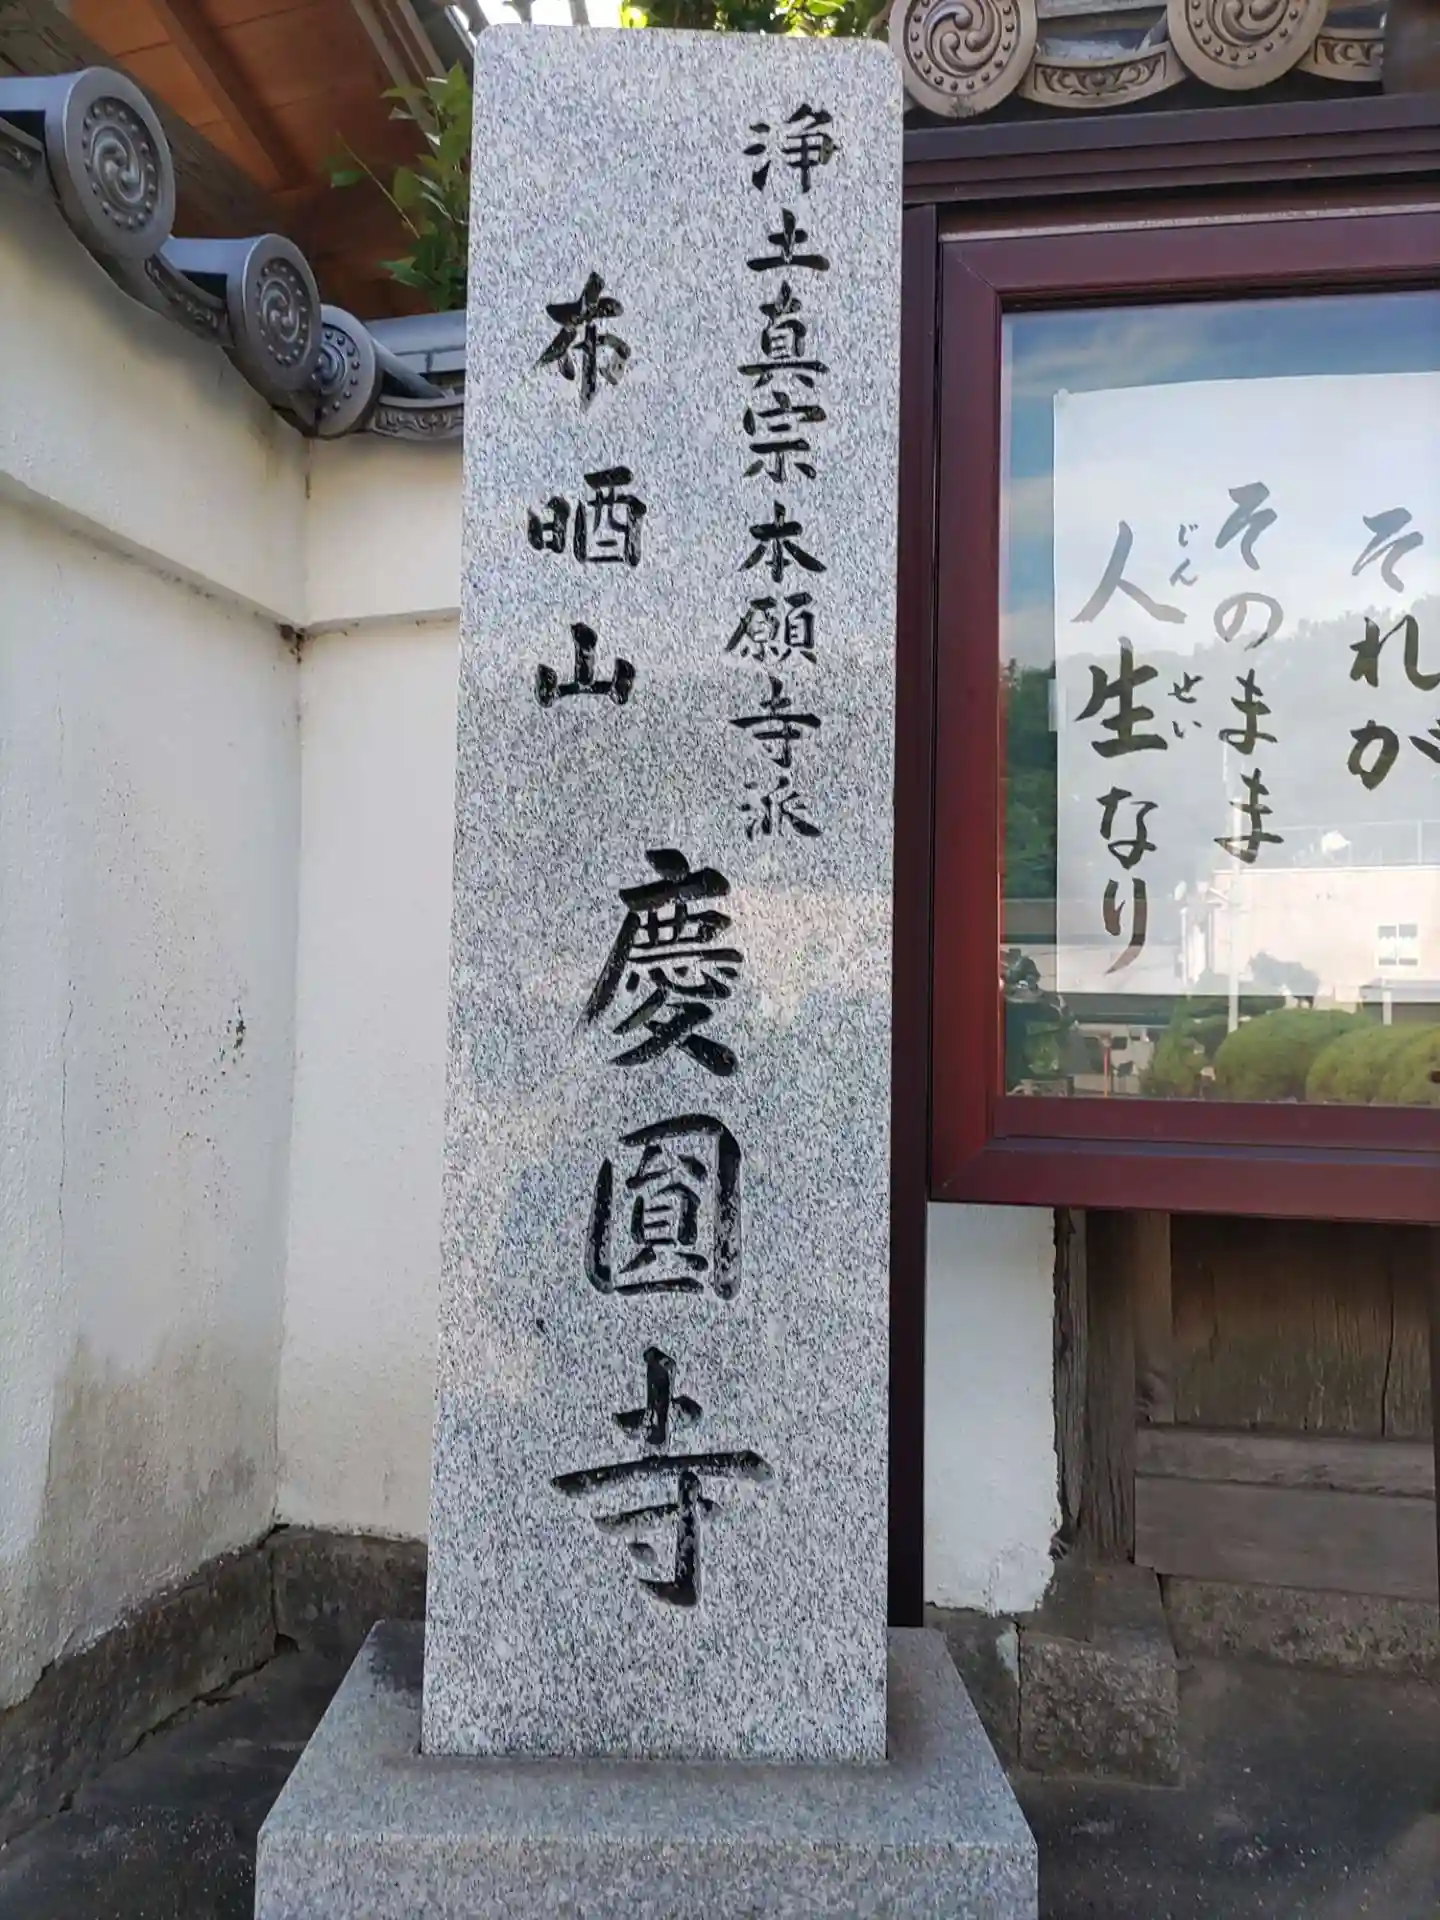 それが
そのまま
人生なり
じんせい
浄土真宗本願寺派
布晒山
慶圓寺